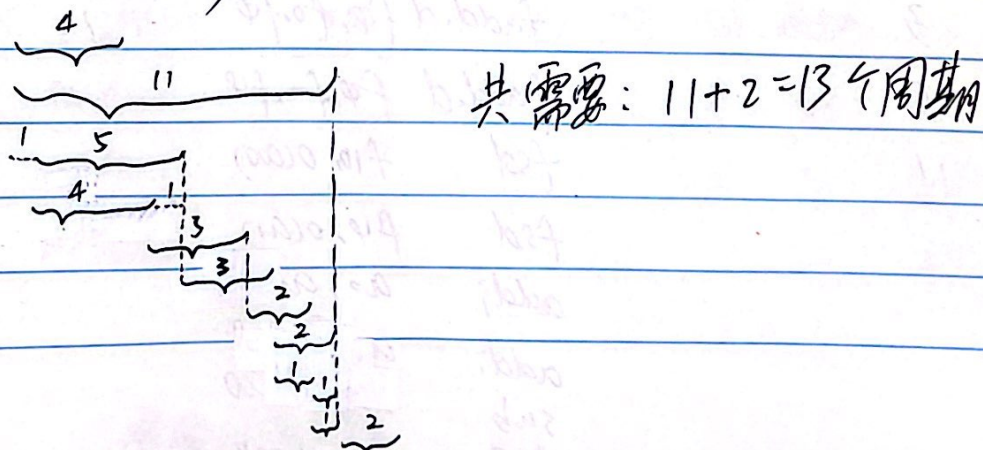 4
11
共需要: 11+2=13个周期
1 5
4 1
3
3
2
2
1 1
2